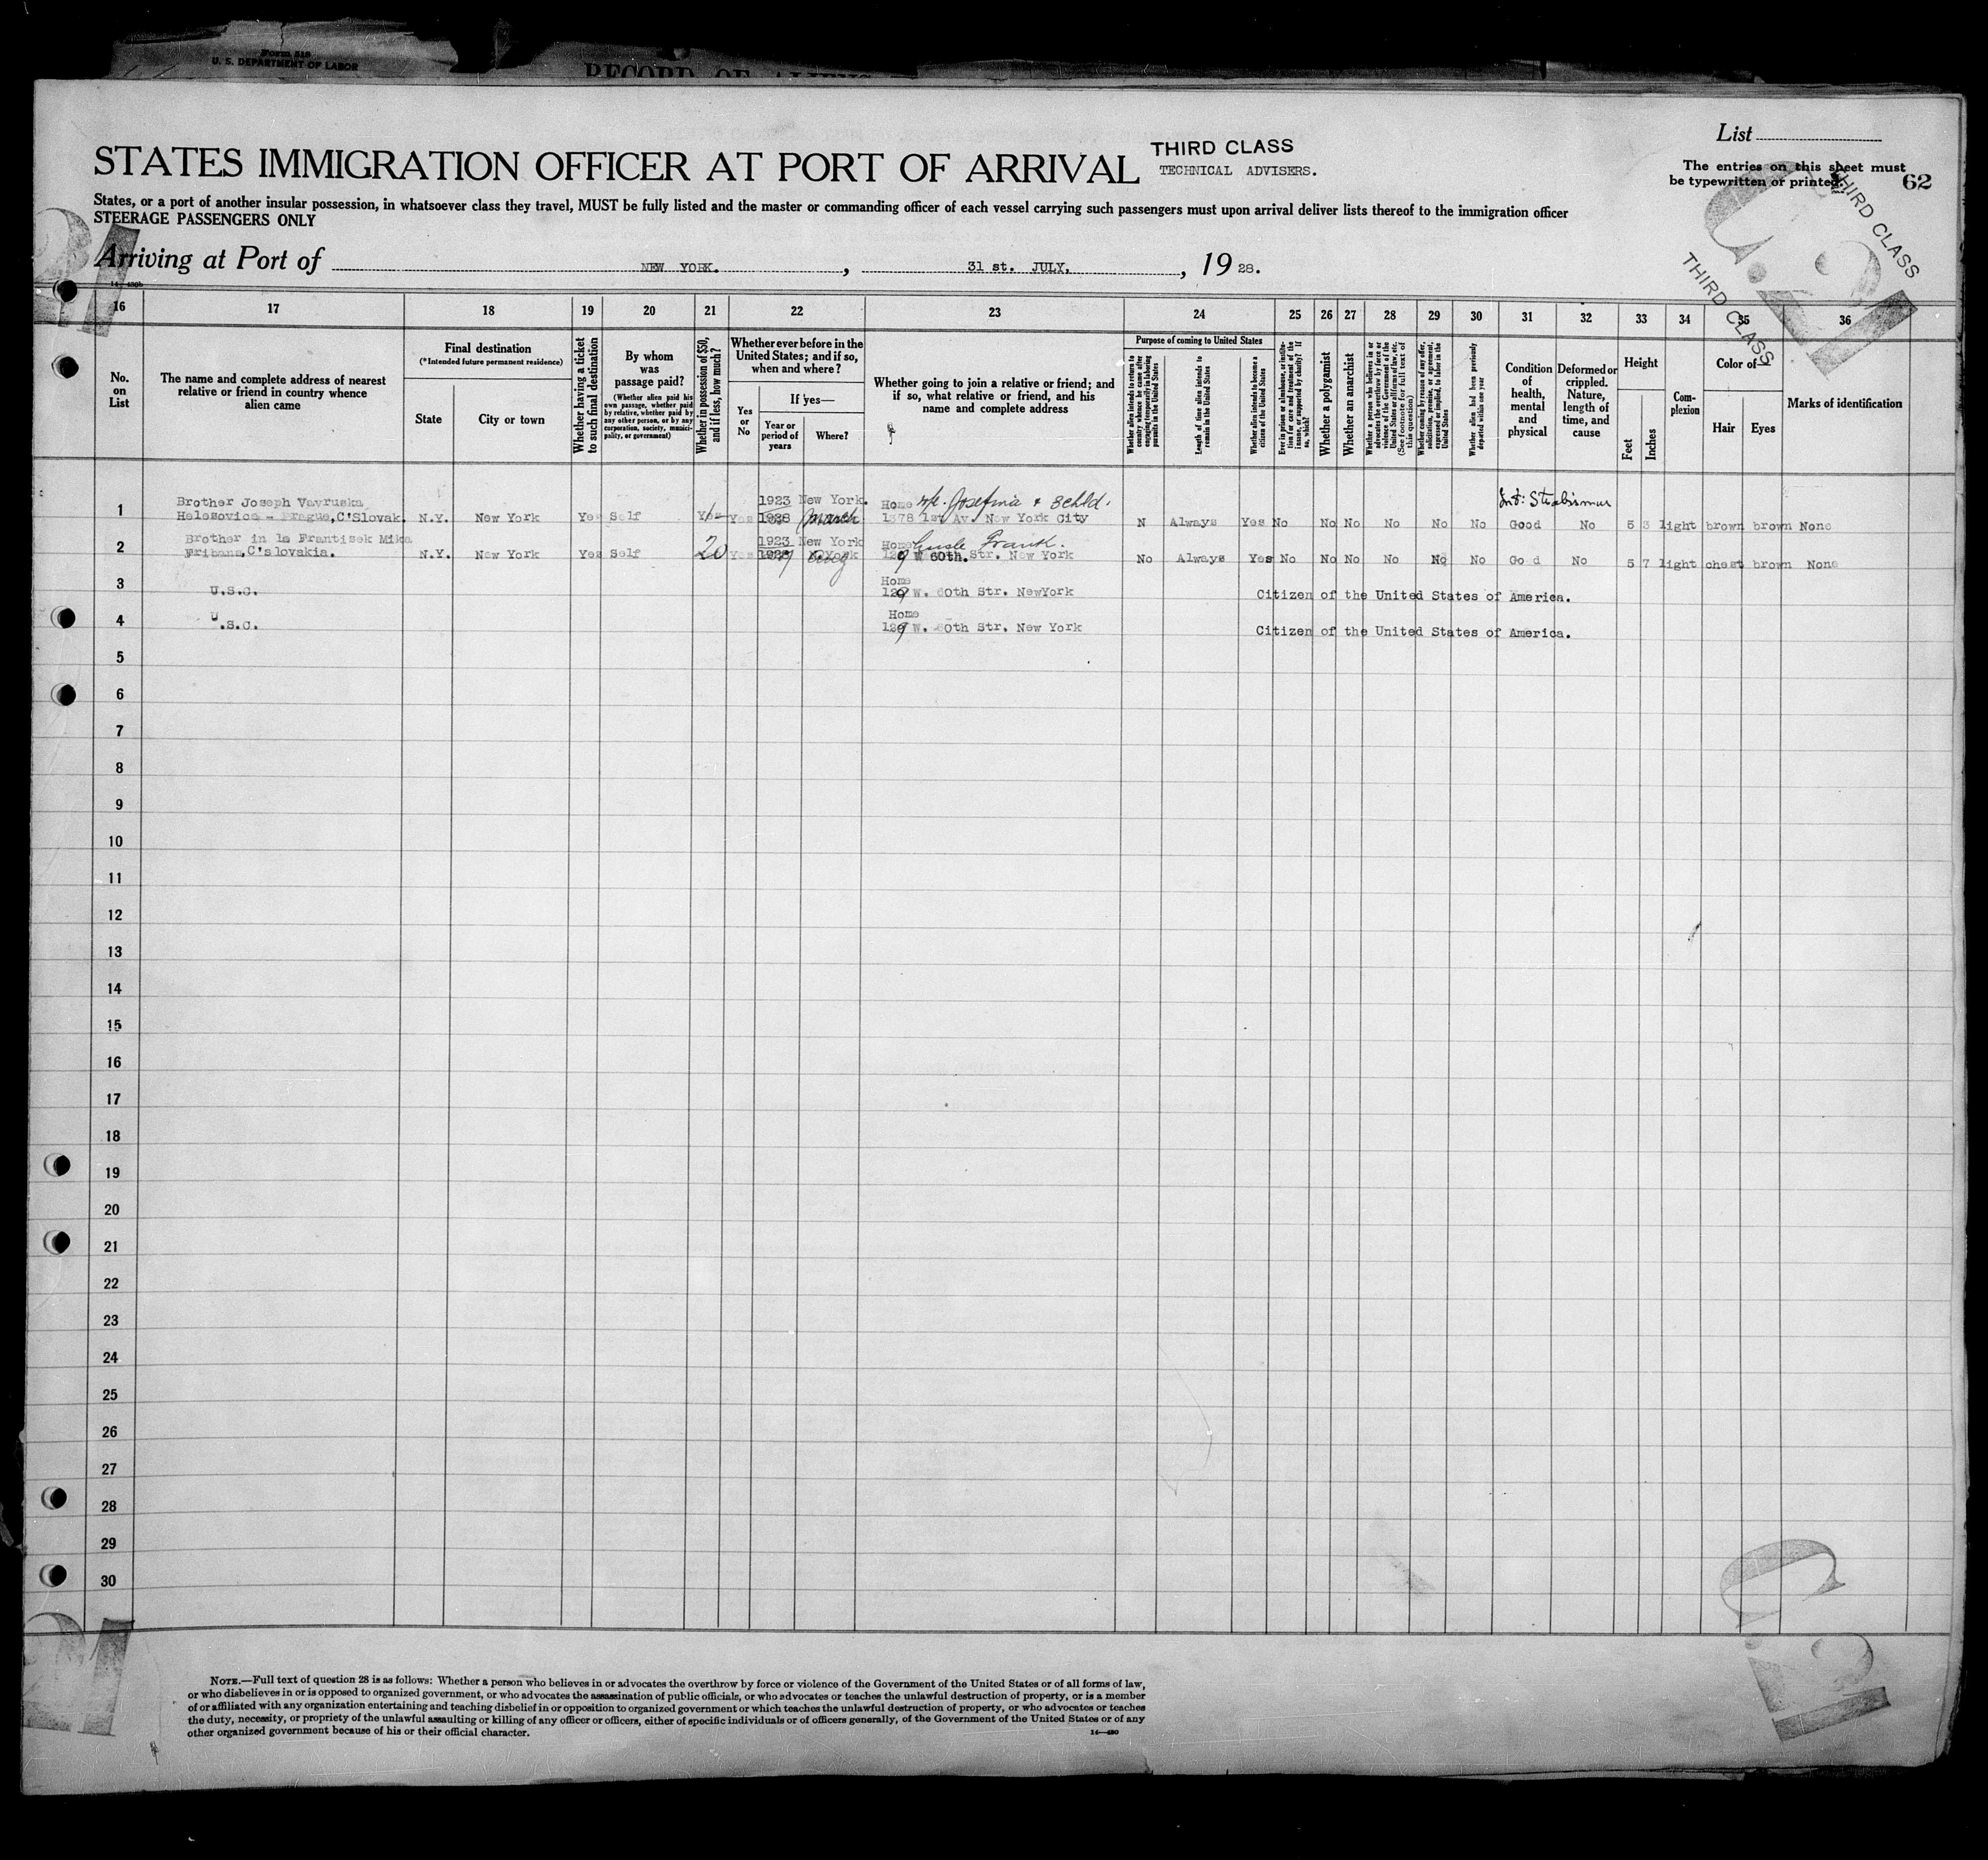 Form 518
U. S. DEPARTMENT OF LABOR
RECORD OF ALIENS
List
THIRD CLASS
STATES IMMIGRATION OFFICER AT PORT OF ARRIVAL
TECHNICAL ADVISERS.
The entries on this sheet must
be typewritten or printed.
62
THIRD CLASS
THIRD CLASS
States, or a port of another insular possession, in whatsoever class they travel, MUST be fully listed and the master or commanding officer of each vessel carrying such passengers must upon arrival deliver lists thereof to the immigration officer
STEERAGE PASSENGERS ONLY
Arriving at Port of NEW YORK. , 31 st. JULY. , 19 28.
16 17 18 19 20 21 22 23 24 25 26 27 28 29 30 31 32 33 34 35 36
No. on List
The name and complete address of nearest relative or friend in country whence alien came
Final destination
(*Intended future permanent residence)
State
City or town
Whether having a ticket to such final destination
By whom was passage paid?
(Whether alien paid his own passage, whether paid by relative, whether paid by any other person, or by any corporation, society, municipality, or government)
Whether in possession of $50, and if less, how much?
Whether ever before in the United States; and if so, when and where?
Yes or No
If yes—
Year or period of years
Where?
Whether going to join a relative or friend; and if so, what relative or friend, and his name and complete address
Purpose of coming to United States
Whether alien intends to return to country whence he came after engaging temporarily in laboring pursuits in the United States
Length of time alien intends to remain in the United States
Whether alien intends to become a citizen of the United States
Ever in prison or almshouse, or institution for care and treatment of the insane, or supported by charity? If so, which?
Whether a polygamist
Whether an anarchist
Whether a person who believes in or advocates the overthrow by force or violence of the Government of the United States or all forms of law, etc. (See footnote for full text of this question)
Whether coming by reason of any offer, solicitation, promise, or agreement, expressed or implied, to labor in the United States
Whether alien had been previously deported within one year
Condition of health, mental and physical
Deformed or crippled. Nature, length of time, and cause
Height
Feet
Inches
Complexion
Color of—
Hair
Eyes
Marks of identification
Brother Joseph Vavruska 1923 New York. Home Josefina & 3 child. Strabismus
1 Holesovice - Prague, C'Slovak. N.Y. New York Yes Self Yes Yes 1928 March 1378 1st Av. New York City N Always Yes No No No No No No Good No 5 3 light brown brown None
Brother in la Frantisek Mika 1923 New York Home Frank.
2 Pribans, C'slovakia. N.Y. New York Yes Self 20 Yes N.York 129 W 60th. Str. New York No Always Yes No No No No No No Good No 5 7 light chest brown None
Home
3 U.S.C. 129 W. 60th Str. NewYork Citizen of the United States of America.
Home
4 U.S.C. 129 W. 60th Str. New York Citizen of the United States of America.
5
6
7
8
9
10
11
12
13
14
15
16
17
18
19
20
21
22
23
24
25
26
27
28
29
30
NOTE.—Full text of question 28 is as follows: Whether a person who believes in or advocates the overthrow by force or violence of the Government of the United States or of all forms of law,
or who disbelieves in or is opposed to organized government, or who advocates the assassination of public officials, or who advocates or teaches the unlawful destruction of property, or is a member
of or affiliated with any organization entertaining and teaching disbelief in or opposition to organized government or which teaches the unlawful destruction of property, or who advocates or teaches
the duty, necessity, or propriety of the unlawful assaulting or killing of any officer or officers, either of specific individuals or of officers generally, of the Government of the United States or of any
other organized government because of his or their official character.
14—480